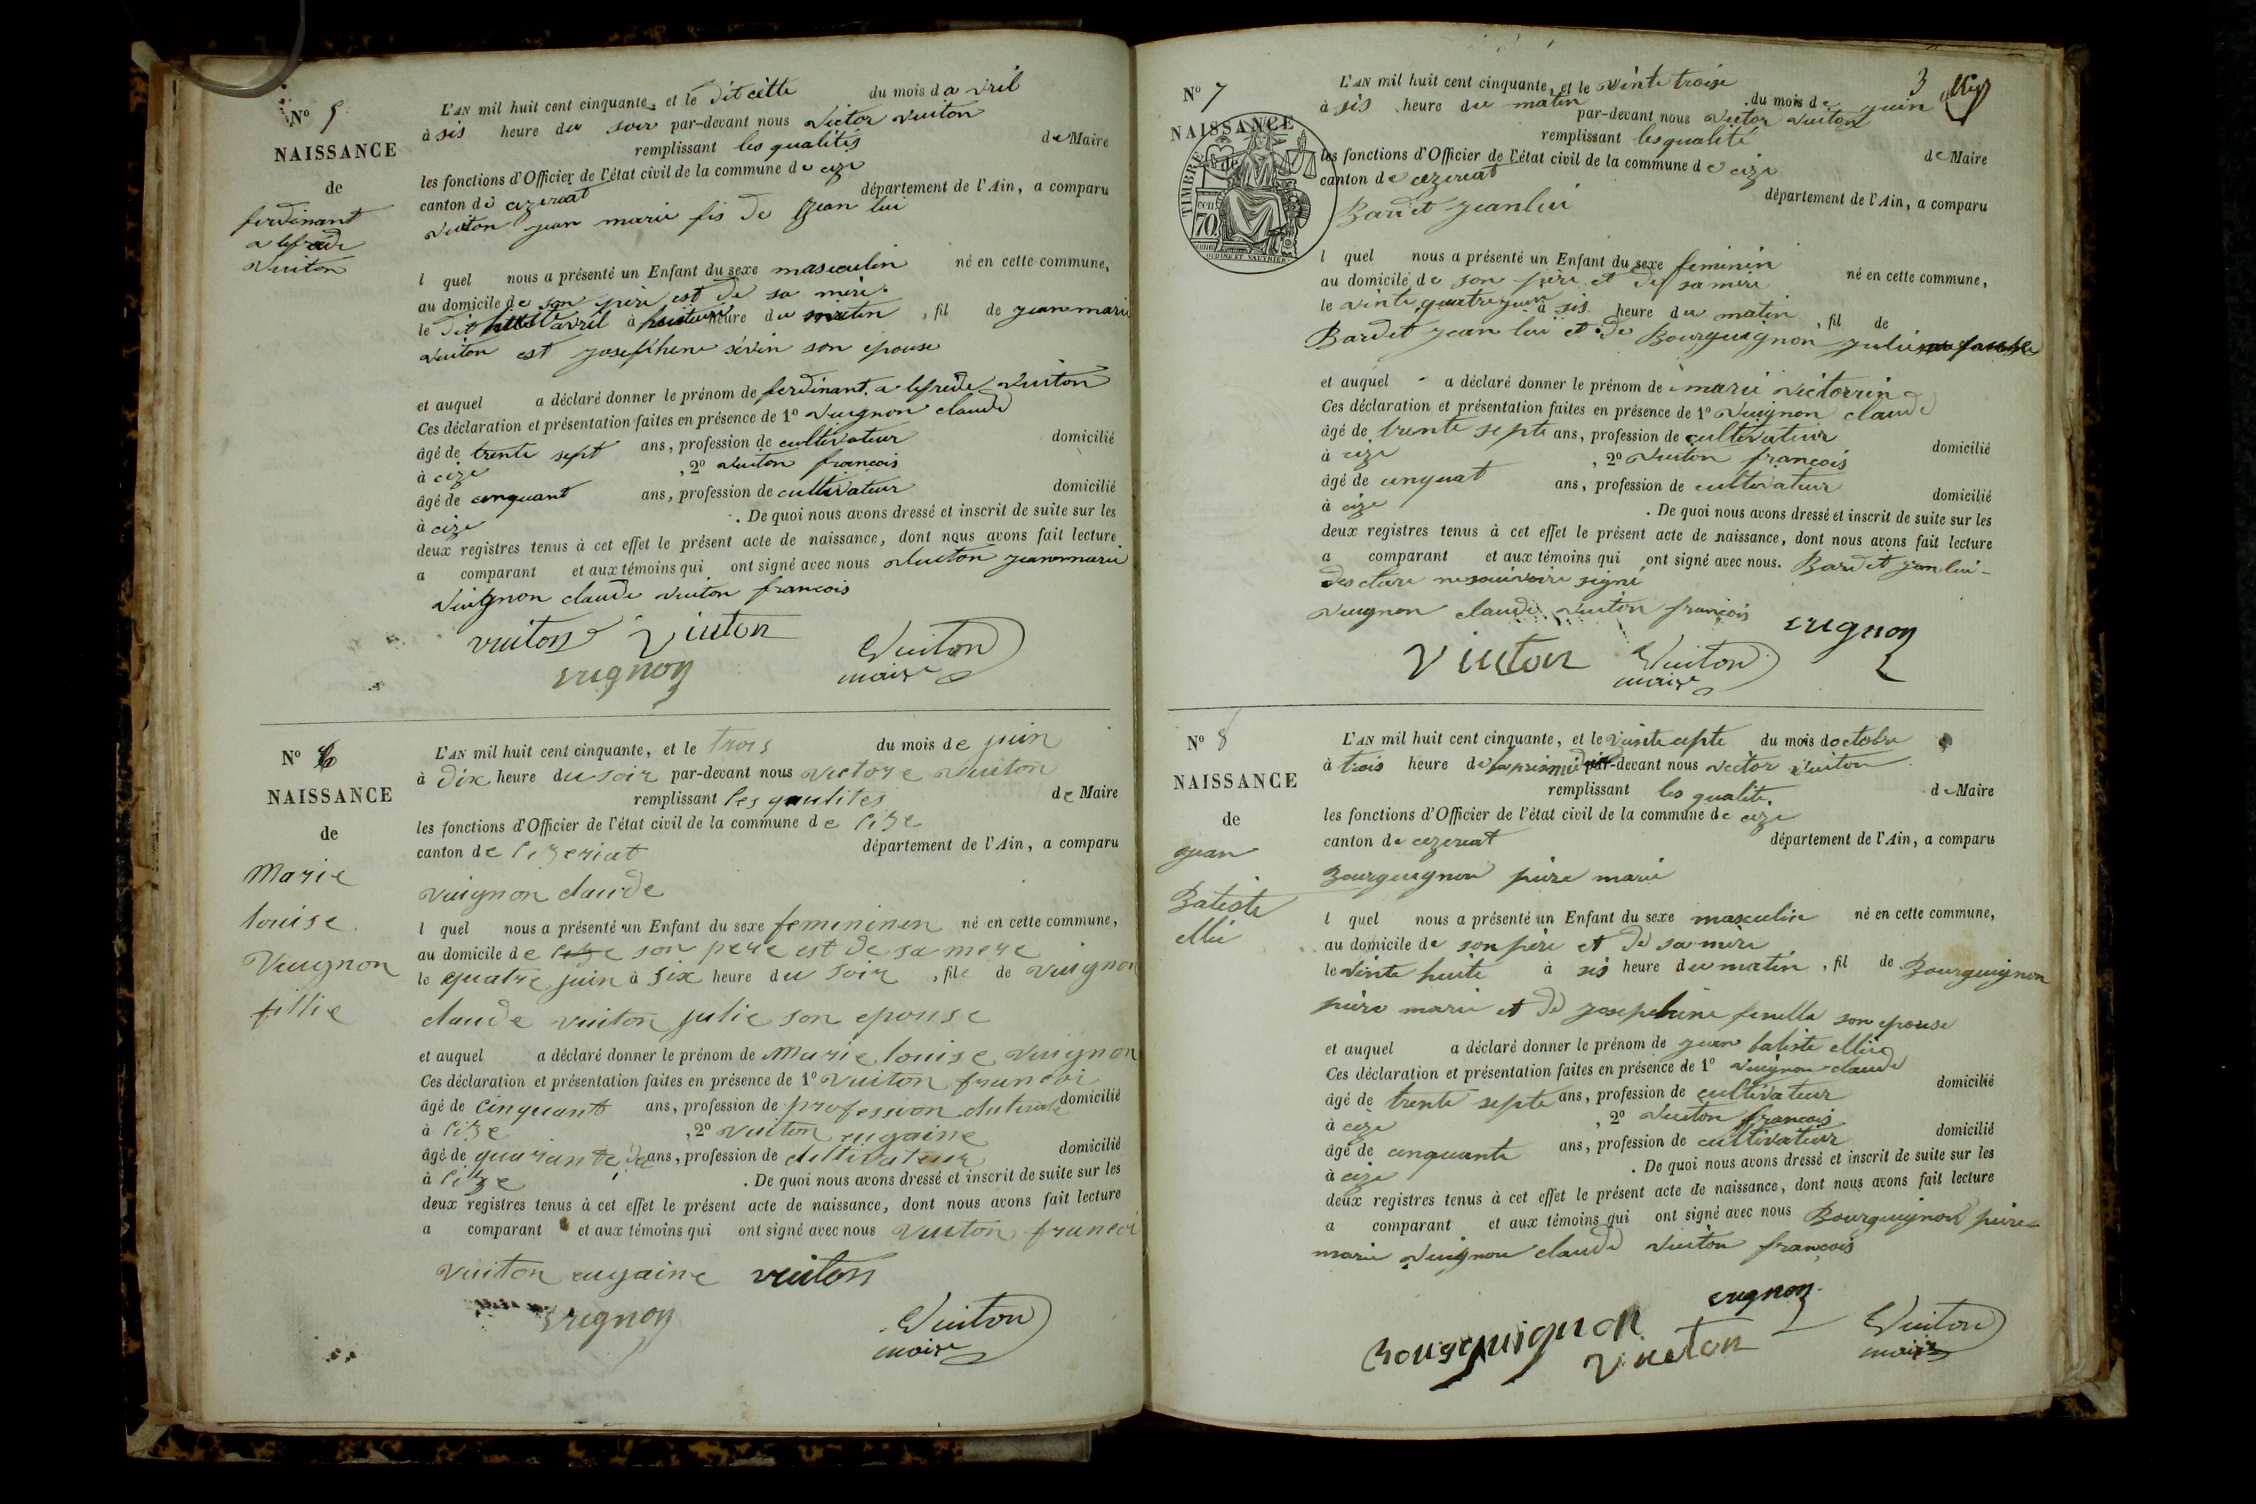 N° 5
NAISSANCE
de
ferdinant
a lefrede
Vuiton
L'AN mil huit cent cinquante, et le dit cette du mois d avril
à sis heure du soir par-devant nous victor vuiton
remplissant les qualités de Maire
les fonctions d'Officier de l'état civil de la commune de cize
canton de cezeriat département de l'Ain, a comparu
vuiton jean marie fis de jean lui
l quel nous a présenté un Enfant du sexe masculin né en cette commune,
au domicile de son père est de sa mère.
le dit avril à heure du matin , fil de jean marie
vuiton est josephene sévin son epouse
et auquel a déclaré donner le prénom de ferdinant a lefrede vuiton
Ces déclaration et présentation faites en présence de 1° vuignon claude
âgé de trente sept ans, profession de cultivateur domicilié
à cize , 2° vuiton francois
âgé de cinquant ans, profession de cultivateur domicilié
à cize . De quoi nous avons dressé et inscrit de suite sur les
deux registres tenus à cet effet le présent acte de naissance, dont nous avons fait lecture
a comparant et aux témoins qui ont signé avec nous vuiton jean marie
vuignon claude vuiton francois
vuiton vuiton Vuiton
vugnon maire
N° 6
NAISSANCE
de
Marie
louise
Vuignon
fillie
L'AN mil huit cent cinquante, et le trois du mois de juin
à dix heure du soir par-devant nous victore vuiton
remplissant les qualites de Maire
les fonctions d'Officier de l'état civil de la commune de cize
canton de cizeriat département de l'Ain, a comparu
vuignon claude
l quel nous a présenté un Enfant du sexe femininen né en cette commune,
au domicile de son pere est de sa mere
le quatre juin à six heure du soir , file de vuignon
claude vuiton julie son epouse
et auquel a déclaré donner le prénom de Marie louise vuignon
Ces déclaration et présentation faites en présence de 1° vuiton francoi
âgé de cinquant ans, profession de profession domicilié
à cize , 2° vuiton eugaine
âgé de quarante ans, profession de cultivateur domicilié
à cize . De quoi nous avons dressé et inscrit de suite sur les
deux registres tenus à cet effet le présent acte de naissance, dont nous avons fait lecture
a comparant et aux témoins qui ont signé avec nous vuiton francoi
vuiton eugaine vuiton
vugnon Vuiton
maire
3
N° 7
NAISSANCE
de
TIMBRE
70
L'AN mil huit cent cinquante, et le vinte troise du mois de juin
à sis heure du matin par-devant nous victor vuiton
remplissant les qualité de Maire
les fonctions d'Officier de l'état civil de la commune de cize
canton de cezeriat département de l'Ain, a comparu
Bardet jean lui
l quel nous a présenté un Enfant du sexe feminin né en cette commune,
au domicile de son père et de sa mère
le vinte quatre juin à sis heure du matin , fil de
Bardet jean lui et de Bourguignon julie
et auquel a déclaré donner le prénom de marie victorrine
Ces déclaration et présentation faites en présence de 1° vuignon claude
âgé de trente septe ans, profession de cultivateur domicilié
à cize , 2° vuiton françois
âgé de cinquat ans, profession de cultivateur domicilié
à cize . De quoi nous avons dressé et inscrit de suite sur les
deux registres tenus à cet effet le présent acte de naissance, dont nous avons fait lecture
a comparant et aux témoins qui ont signé avec nous. Bardet jean lui
des clare ne savoire signé
vuignon claude vuiton françois vugnon
vuiton Vuiton
maire
N° 8
NAISSANCE
de
jean
Batiste
ellie
L'AN mil huit cent cinquante, et le vinte cepte du mois doctobre
à trois heure de par-devant nous victor vuiton
remplissant les qualite. de Maire
les fonctions d'Officier de l'état civil de la commune de cize
canton de cezeriat département de l'Ain, a comparu
Bourguignon piére marie
l quel nous a présenté un Enfant du sexe masculine né en cette commune,
au domicile de son père et de sa mère
le vinte huite à sis heure du matin , fil de Bourguignon
piére marie et de josephine fenella son epouse
et auquel a déclaré donner le prénom de jean batiste ellie
Ces déclaration et présentation faites en présence de 1° vuignon claude
âgé de trente septe ans, profession de cultivateur domicilié
à cize , 2° vuiton françois
âgé de cinquante ans, profession de cultivateur domicilié
à cize . De quoi nous avons dressé et inscrit de suite sur les
deux registres tenus à cet effet le présent acte de naissance, dont nous avons fait lecture
a comparant et aux témoins qui ont signé avec nous Bourguignon piére
marie vuignon claude vuiton françois
vugnon
Bourguignon vuiton Vuiton
maire